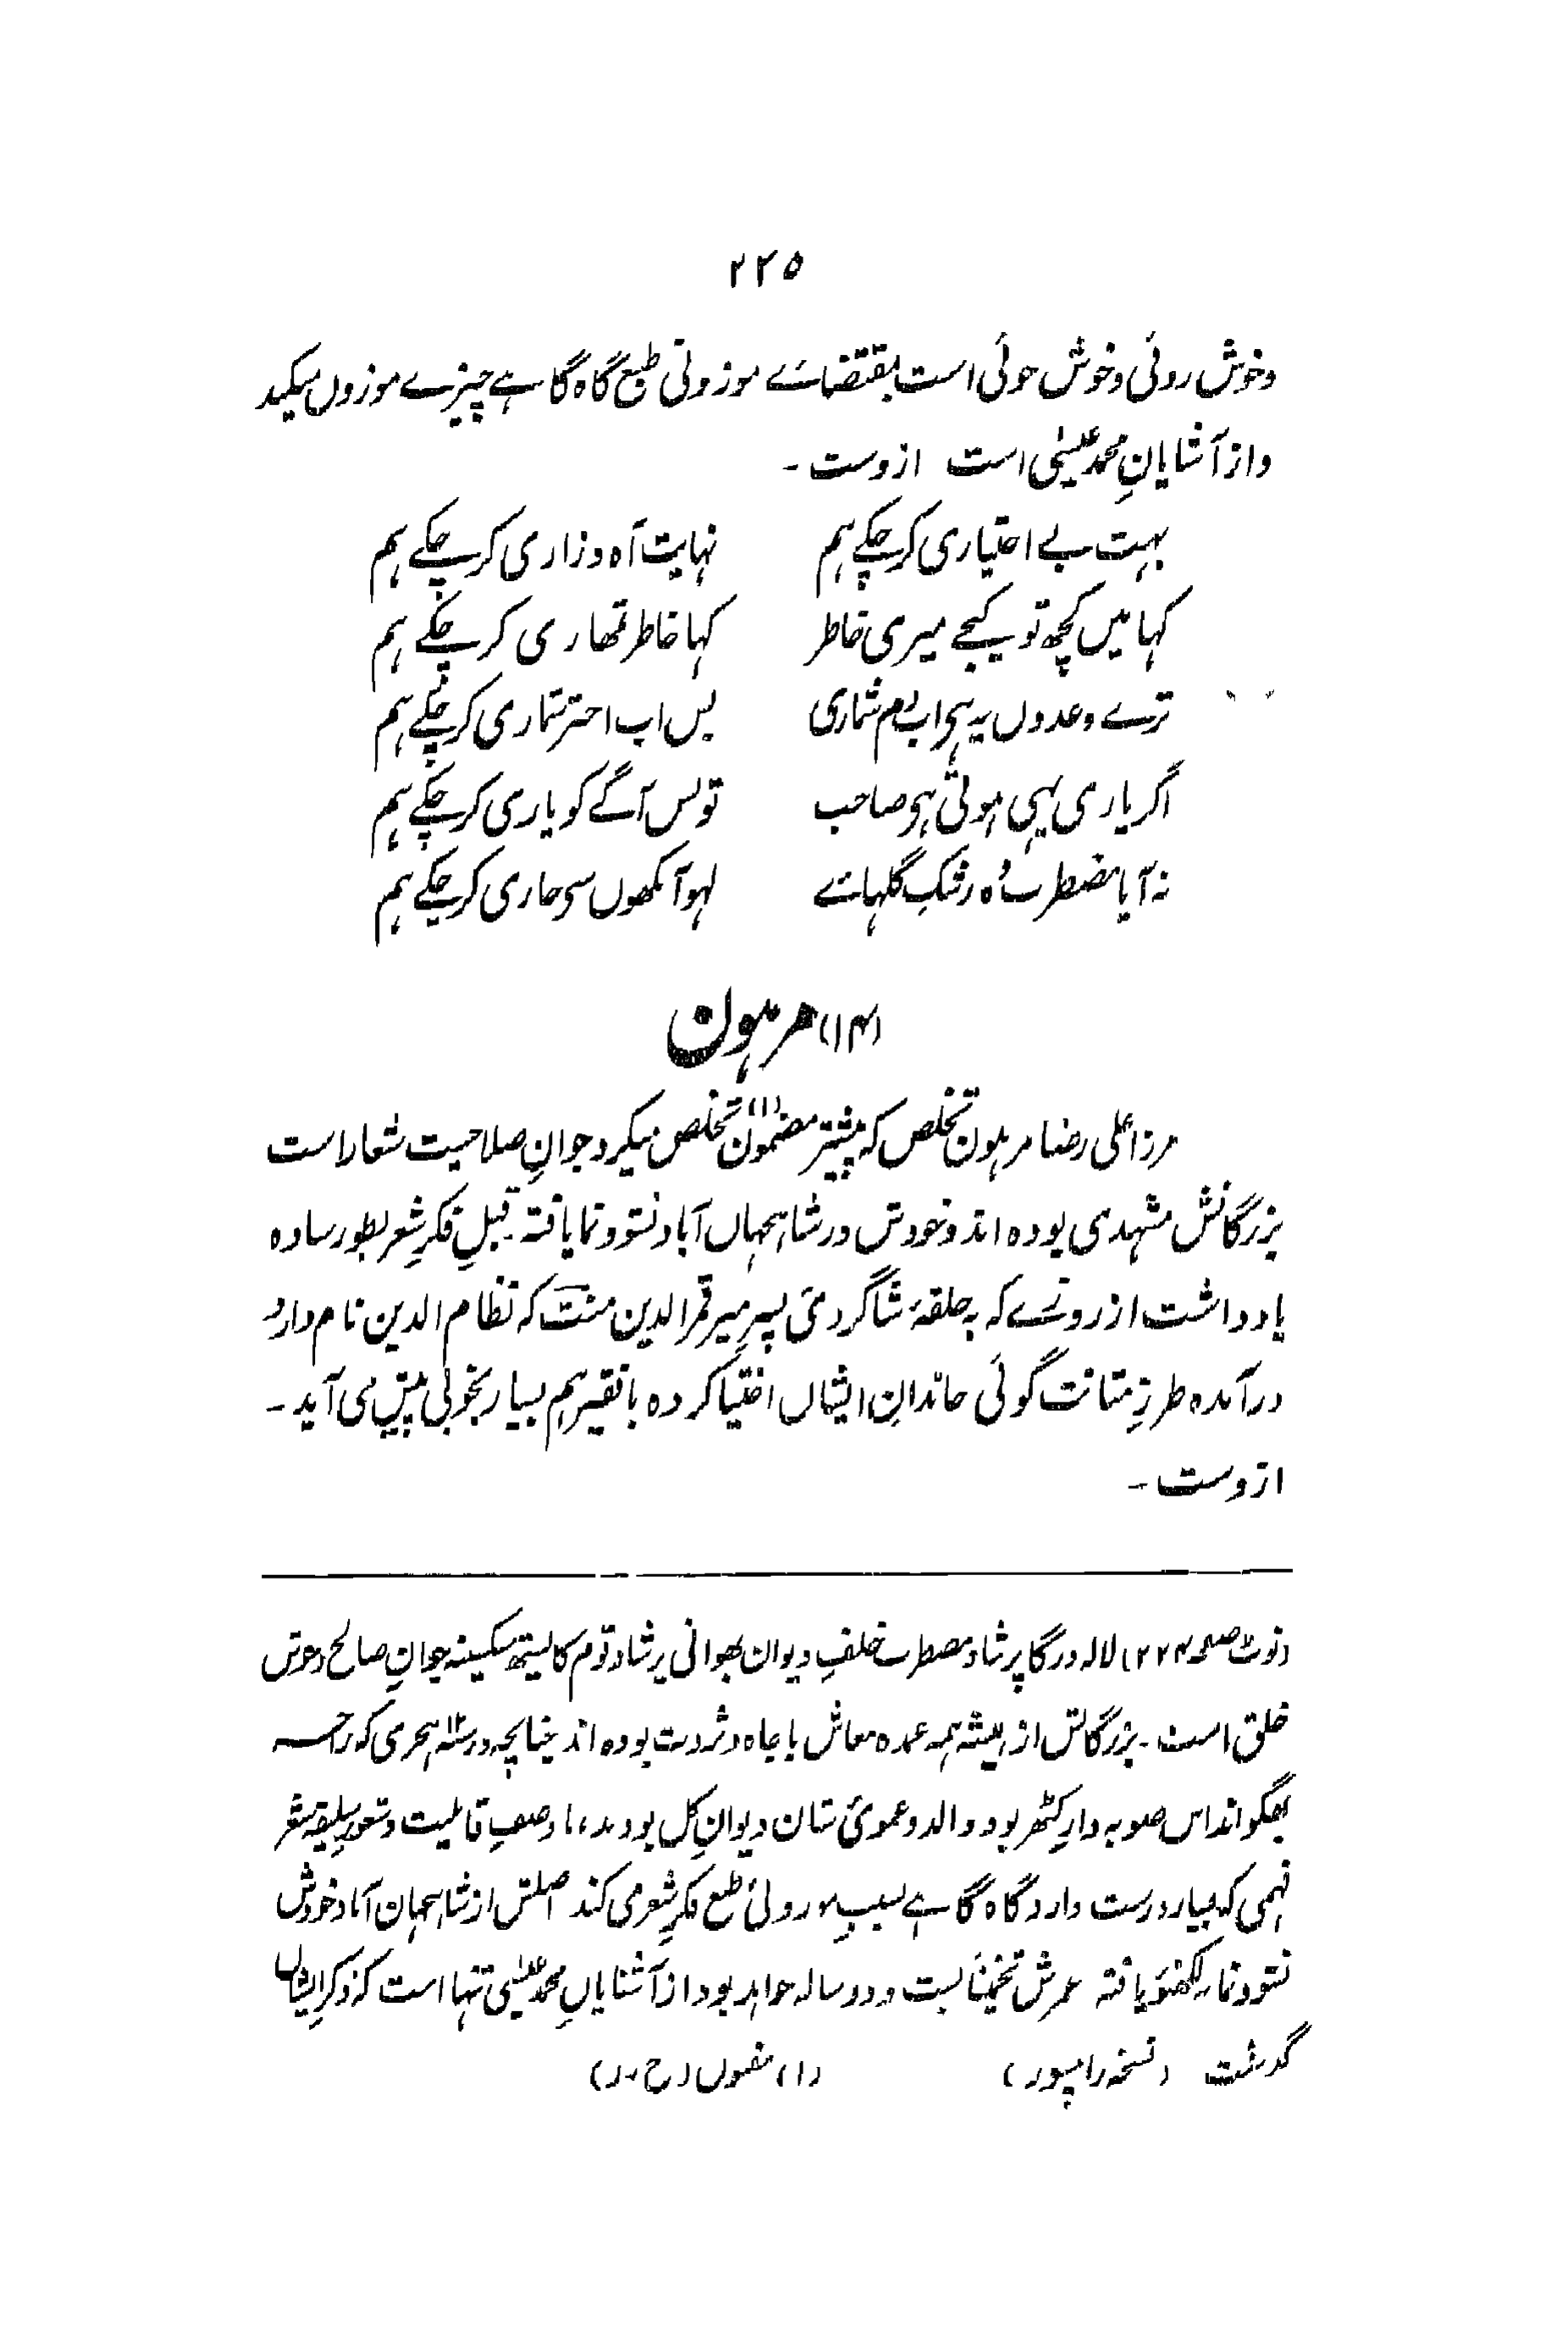 ۲۲۵
وخوش روئی وخوش خوئی است بمقتضائے موزونی طبع گاہ گاہے چیزے موزوں میکند
واز آشنایانِ محمد عیسیٰ است ازوست ۔
بہت بے اختیاری کر چکے ہم نہایت آہ وزاری کر چکے ہم
کہا میں کچھ تو کیجے میری خاطر کہا خاطر تمھاری کر چکے ہم
ترے وعدوں پہ ہو اب دم شماری بس اب اختر شماری کر چکے ہم
اگر یاری یہی ہوتی ہو صاحب تو بس آگے کو یاری کر چکے ہم
نہ آیا مضطرب وہ رشکِ گلہائے لہو آنکھوں سو جاری کر چکے ہم
(۱۴) مرہون
مرزا علی رضا مرہون تخلص کہ پیشتر مضمون(۱) تخلص میکرد جوانِ صلاحیت شعار است
بزرگانش مشہدی بودہ اند وخودش در شاہجہاں آباد نشوونما یافتہ ۔ قبل فکرِ شعر بطور سادہ
یاد داشت از روزے کہ بہ حلقۂ شاگردئ پسرِ میر قمرالدین منت کہ نظام الدین نام دارد
درآمدہ طرزِ متانت گوئی خاندانِ ایشاں اختیا کردہ با فقیر ہم بسیار بخوبی پیش می آید ۔
ازوست ۔
(نوٹ صفحہ ۲۲۴) لالہ درگا پرشاد مضطرب خلفِ دیوان بھوانی پرشاد قوم کایتھ سکسینہ جوانِ صالح وخوش
خلق است ۔ بزرگانش از ہمیشہ ہمہ عمدہ معاش با جاہ وثروت بودہ اند چنانچہ در ہجری کہ راجہ
بھگوانداس صوبہ دارِ کٹھر بود والد وعموئ شان دیوانِ کل بودند، با وصفِ قابلیت وشعور سلیقہ شعر
فہمی کہ بسیار درست دارد گاہ گاہے بسببِ موزونئ طبع فکرِ شعر می کند اصلش از شاہجہان آباد خودش
نشوونما بہ لکھنؤ یافتہ عمرش تخمیناً بست ودو سالہ خواہد بود از آشنایانِ محمد عیسیٰ تنہا است کہ ذکرِ ایشاں
گذشت (نسخہ رامپور) (۱) مفموں (خ ۔ ر)